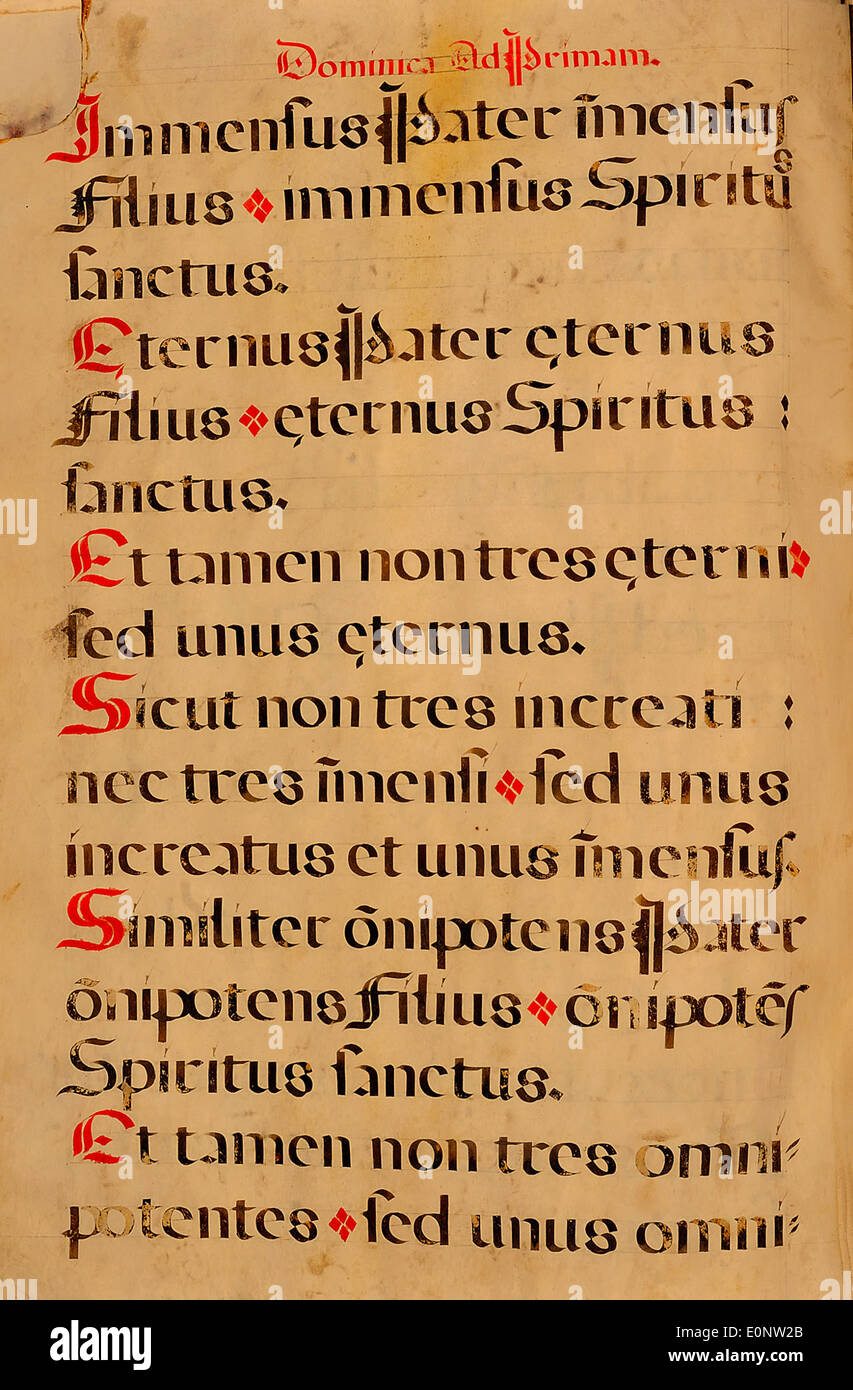 Dominica Ad Primam.
Immenſus Pater īmenſuſ
Filius immenſus Spiritūs
ſanctus.
Eternus Pater ęternus
Filius ęternus Spiritus :
ſanctus.
Et tamen non tres ęterni
ſed unus ęternus.
Sicut non tres increati :
nec tres īmenſi ſed unus
increatus et unus īmenſuſ.
Similiter ōnipotens Pater
ōnipotens Filius ōnipotēſ
Spiritus ſanctus.
Et tamen non tres omni⸗
potentes ſed unus omni⸗
alamy
Image ID: E0NW2B
www.alamy.com